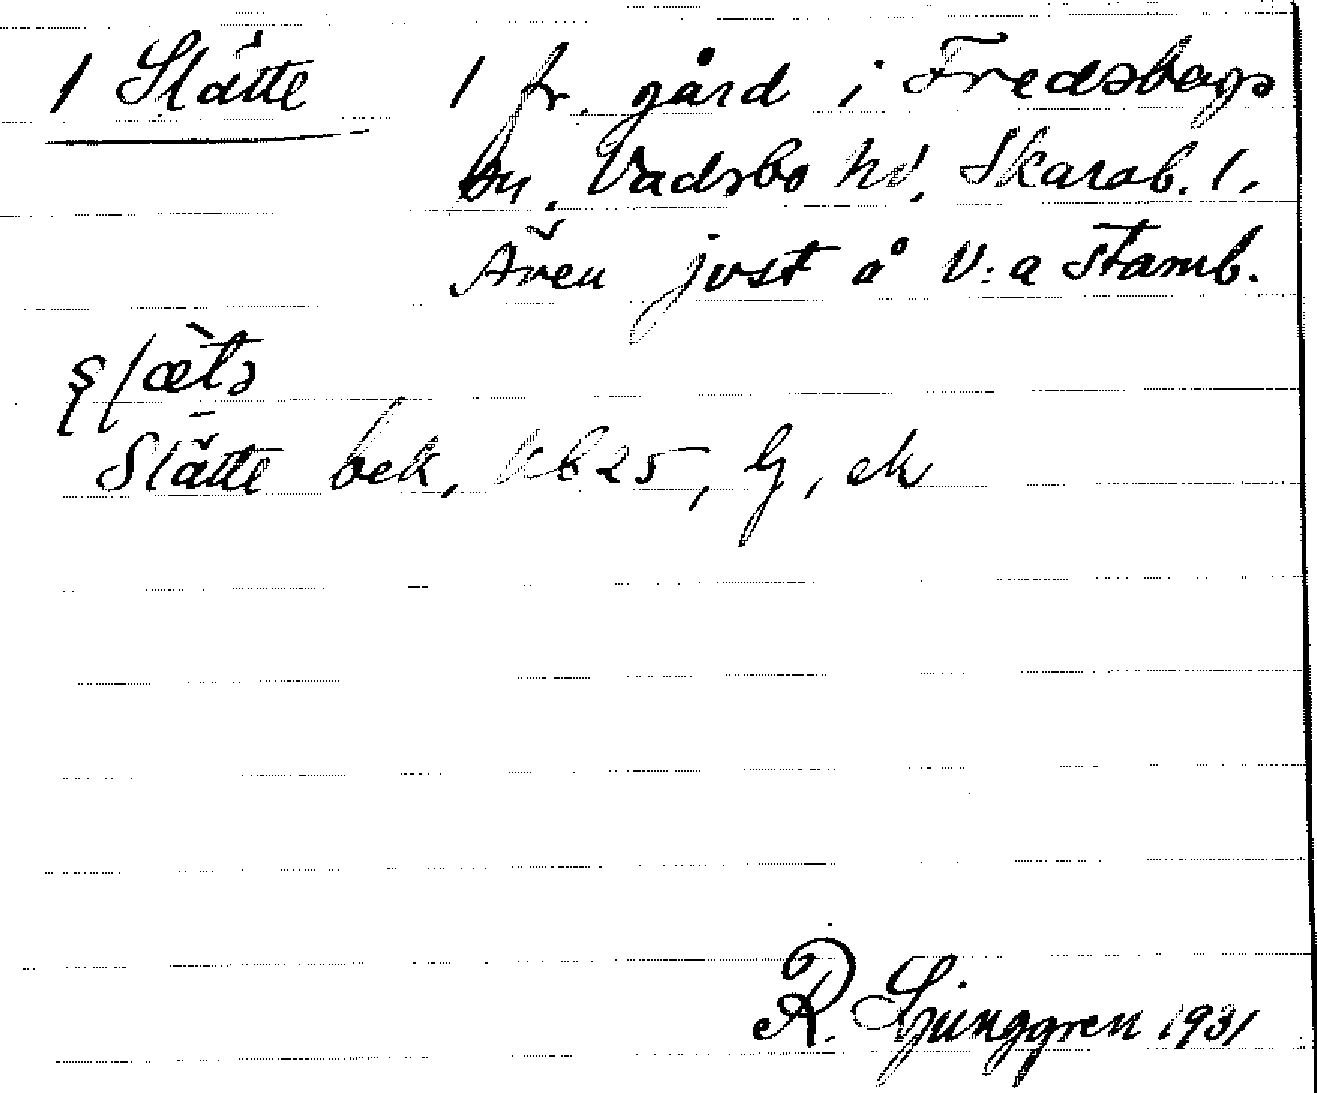 1 Slätte 1 fr. gård i Fredsbergs
by, Vadsbo hd, Skarab. l.
Även jvst å V:a Stamb.
slætə
Slätte bek, kb 25, Gj, ek
R. Ljunggren 1931